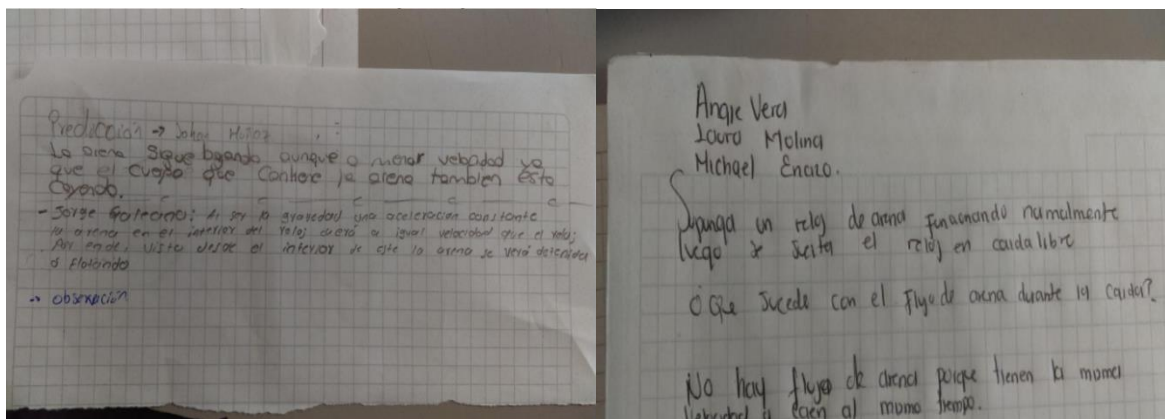 Predicción → Johan Muñoz
La arena sigue bajando aunque a menor velocidad ya
que el cuerpo que contiene la arena tambien está
cayendo.
- Jorge Galeano: Al ser la gravedad una aceleracion constante
la arena en el interior del reloj caerá a igual velocidad que el reloj;
Por ende, vista desde el interior de este la arena se verá detenida
o flotando
→ Observación
Angie Vera
Laura Molina
Michael Enciso.
Suponga un reloj de arena funcionando normalmente
luego se suelta el reloj en caida libre
¿Que sucede con el flujo de arena durante la caida?
No hay flujo de arena porque tienen la misma
velocidad y caen al mismo tiempo.